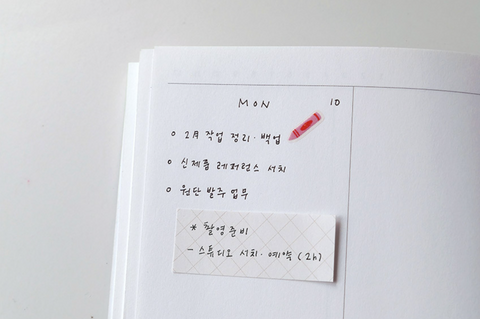 MON 10
o 2월 작업 정리·백업
o 신제품 레퍼런스 서치
o 원단 발주 업무
* 촬영준비
- 스튜디오 서치·예약 (2h)